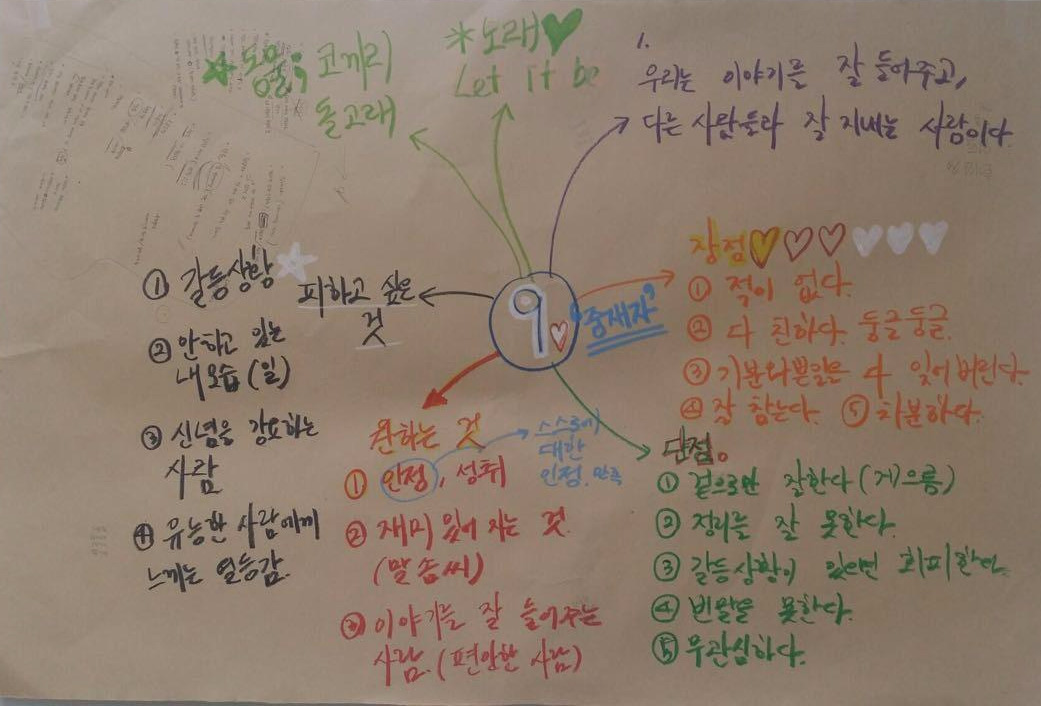 ☆동물; 코끼리
돌고래
*노래♥
Let it be
1.
우리는 이야기를 잘 들어주고,
다른 사람들과 잘 지내는 사람이다.
9 "중재자"
장점
① 적이 없다.
② 다 친하다. 둥글둥글
③ 기분나쁜일은 다 잊어버린다.
④ 잘 참는다. ⑤ 차분하다.
단점.
① 겉으로만 잘한다 (게으름)
② 정리를 잘 못한다.
③ 갈등상황이 있으면 회피한다.
④ 빈말을 못한다.
⑤ 무관심하다.
원하는 것
① 인정, 성취
스스로에
대한
인정. 만족
② 재미 있어 지는 것.
(말솜씨)
③ 이야기를 잘 들어주는
사람. (편안한 사람)
피하고 싶은
것
① 갈등상황
② 안하고 있는
내모습 (일)
③ 신념을 강요하는
사람
④ 유능한 사람에게
느끼는 열등감.